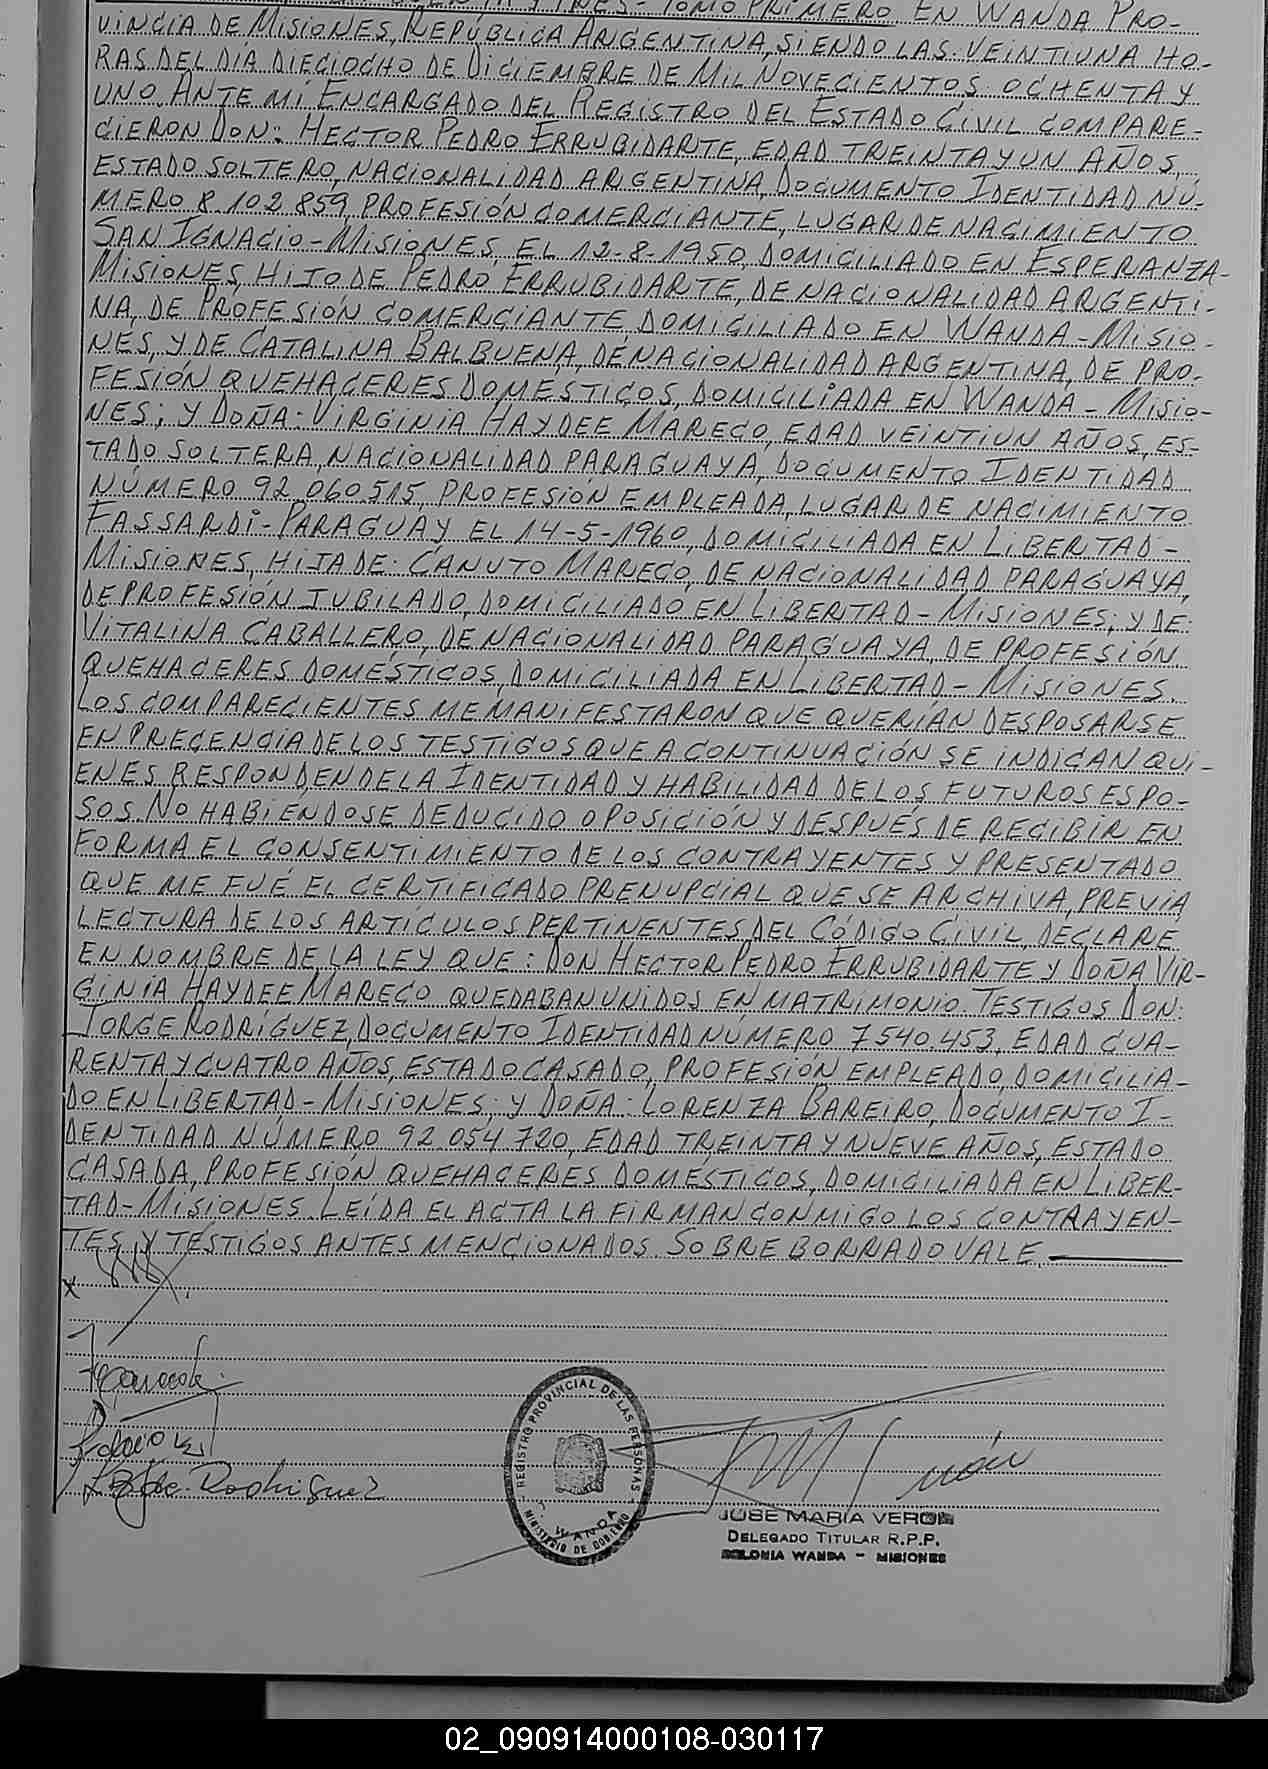 TRES - TOMO PRIMERO EN WANDA PRO-
VINCIA DE MISIONES, REPÚBLICA ARGENTINA, SIENDO LAS: VEINTIUNA HO-
RAS DEL DÍA DIECIOCHO DE DICIEMBRE DE MIL NOVECIENTOS: OCHENTA Y
UNO. ANTE MÍ ENCARGADO DEL REGISTRO DEL ESTADO CIVIL COMPARE-
CIERON DON: HECTOR PEDRO ERRUBIDARTE, EDAD TREINTA Y UN AÑOS,
ESTADO SOLTERO, NACIONALIDAD ARGENTINA, DOCUMENTO IDENTIDAD NÚ-
MERO 8.102.859, PROFESIÓN COMERCIANTE, LUGAR DE NACIMIENTO
SAN IGNACIO - MISIONES, EL 12-8-1950, DOMICILIADO EN ESPERANZA-
MISIONES, HIJO DE PEDRO ERRUBIDARTE, DE NACIONALIDAD ARGENTI-
NA, DE PROFESIÓN COMERCIANTE DOMICILIADO EN WANDA - MISIO-
NES, Y DE CATALINA BALBUENA, DE NACIONALIDAD ARGENTINA, DE PRO-
FESIÓN QUEHACERES DOMÉSTICOS, DOMICILIADA EN WANDA - MISIO-
NES; Y DOÑA: VIRGINIA HAYDEE MARECO, EDAD VEINTIUN AÑOS, ES-
TADO SOLTERA, NACIONALIDAD PARAGUAYA, DOCUMENTO IDENTIDAD
NÚMERO 92.060.515, PROFESIÓN EMPLEADA, LUGAR DE NACIMIENTO
FASSARDI - PARAGUAY EL 14-5-1960, DOMICILIADA EN LIBERTAD -
MISIONES, HIJA DE: CANUTO MARECO, DE NACIONALIDAD PARAGUAYA,
DE PROFESIÓN JUBILADO, DOMICILIADO EN LIBERTAD - MISIONES; Y DE:
VITALINA CABALLERO, DE NACIONALIDAD PARAGUAYA, DE PROFESIÓN
QUEHACERES DOMÉSTICOS, DOMICILIADA EN LIBERTAD - MISIONES.
LOS COMPARECIENTES ME MANIFESTARON QUE QUERÍAN DESPOSARSE
EN PRECENCIA DE LOS TESTIGOS QUE A CONTINUACIÓN SE INDICAN QUI-
ENES RESPONDEN DE LA IDENTIDAD Y HABILIDAD DE LOS FUTUROS ESPO-
SOS. NO HABIENDOSE DEDUCIDO OPOSICIÓN Y DESPUÉS DE RECIBIR EN
FORMA EL CONSENTIMIENTO DE LOS CONTRAYENTES Y PRESENTADO
QUE ME FUÉ EL CERTIFICADO PRENUPCIAL QUE SE ARCHIVA, PREVIA
LECTURA DE LOS ARTÍCULOS PERTINENTES DEL CÓDIGO CIVIL, DECLARE
EN NOMBRE DE LA LEY QUE: DON HECTOR PEDRO ERRUBIDARTE Y DOÑA VIR-
GINIA HAYDEE MARECO QUEDABAN UNIDOS EN MATRIMONIO. TESTIGOS DON:
JORGE RODRÍGUEZ, DOCUMENTO IDENTIDAD NÚMERO 7.540.453, EDAD CUA-
RENTA Y CUATRO AÑOS, ESTADO CASADO, PROFESIÓN EMPLEADO, DOMICILIA-
DO EN LIBERTAD - MISIONES; Y DOÑA: LORENZA BAREIRO, DOCUMENTO I-
DENTIDAD NÚMERO 92.054.720, EDAD TREINTA Y NUEVE AÑOS, ESTADO
CASADA, PROFESIÓN QUEHACERES DOMÉSTICOS, DOMICILIADA EN LIBER-
TAD - MISIONES. LEÍDA EL ACTA LA FIRMAN CONMIGO LOS CONTRAYEN-
TES, Y TESTIGOS ANTES MENCIONADOS. SOBRE BORRADO VALE.
X
Rodriguez
REGISTRO PROVINCIAL DE LAS PERSONAS
WANDA
MINISTERIO DE GOBIERNO
JOSE MARIA VERON
DELEGADO TITULAR R.P.P.
COLONIA WANDA - MISIONES
02_090914000108-030117